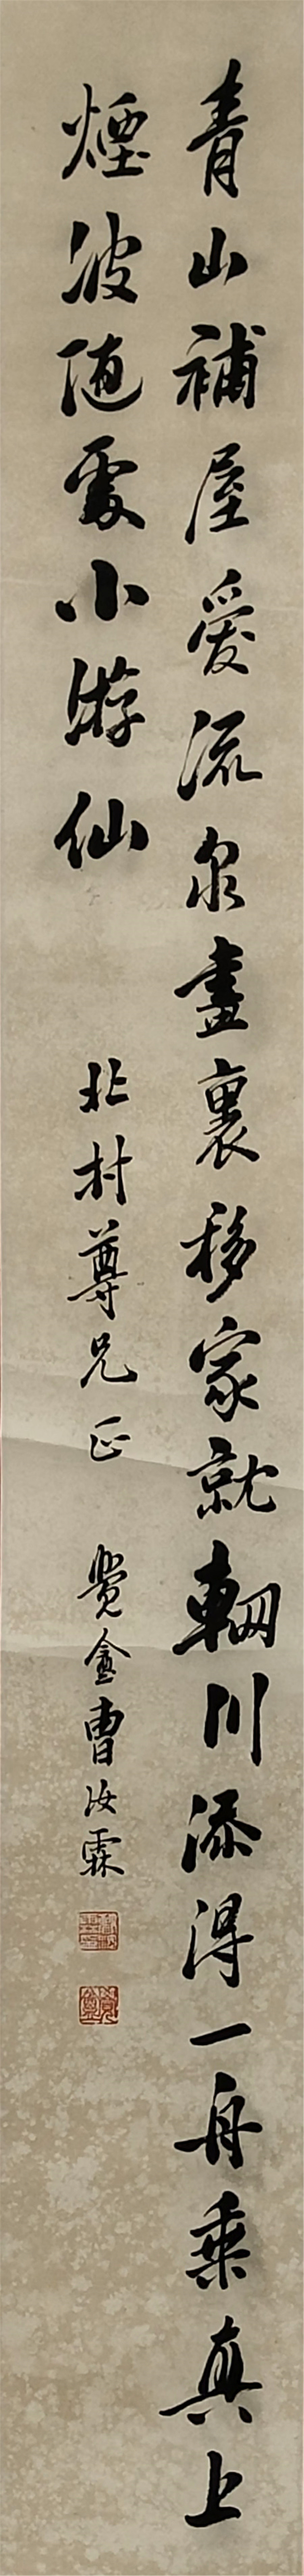 青山補屋愛流泉畫裏移家就輞川添得一舟乘真上
煙波随處小游仙
北村尊兄正
覺盦曹汝霖